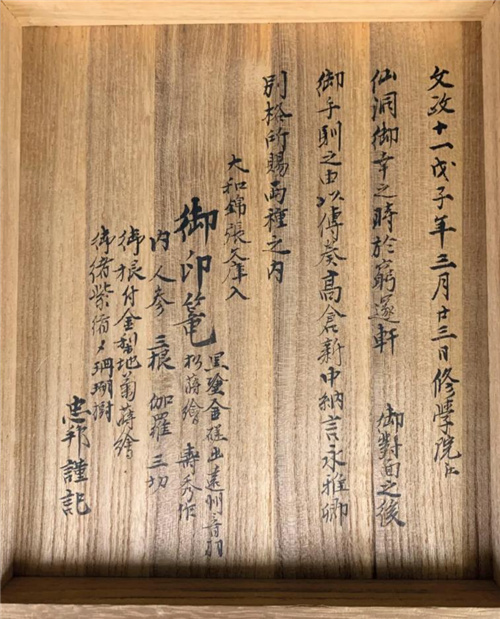 文政十一戊子年三月廿三日修学院江
仙洞御幸之時於窮邃軒　御對面之後
御手馴之由以傳奏髙倉新中納言永雅卿
別格所賜両種之内
大和錦張文庫入
御印篭　黒塗金磨出遠州音羽
松蒔繪　壽秀作
内人参　三根　伽羅　三切
御根付金梨地菊蒔繪
御緒紫縮〆珊瑚樹
忠邦謹記